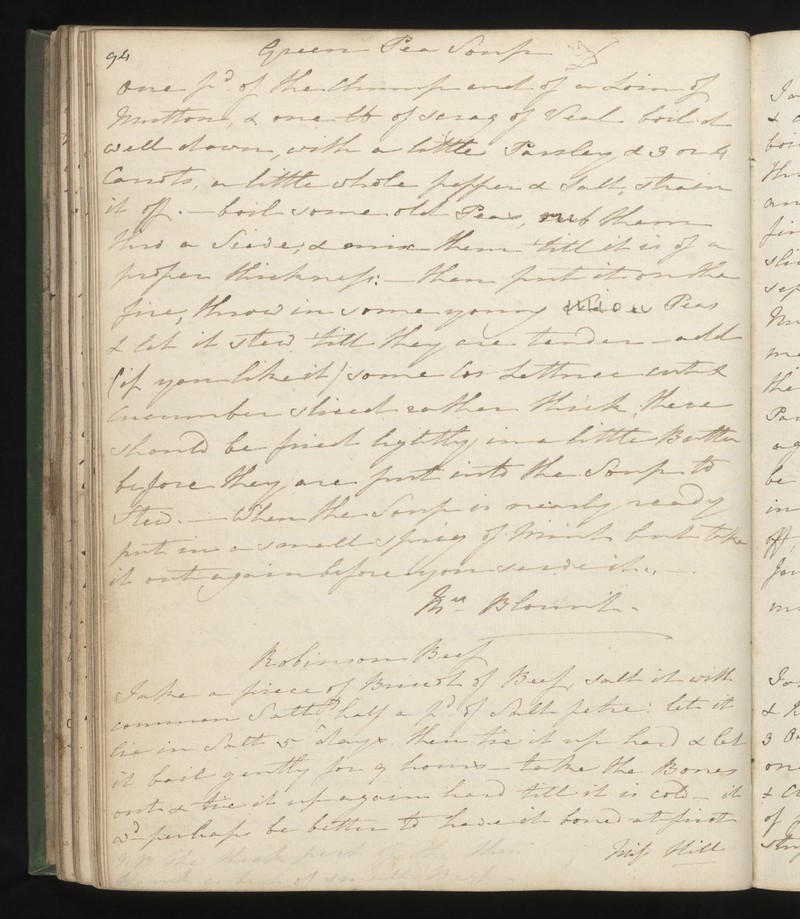 94
Green Pea Soup
One pd of the Chump end of a Loin of
Mutton, & one lb of scrag of Veal boil it
well down, with a little Parsley & 3 or 4
Carrots, a little whole pepper & Salt, strain
it off. — boil some old Peas, rub them
thro a Seive, & mix them 'till it is of a
proper thickness: — then put it on the
fire, throw in some young Peas
& let it stew till they are tender — add
(if you like it) some Cos Lettuce cut &
Cucumber sliced rather thick, these
should be fried lightly in a little Butter
before they are put into the Soup to
Stew. — When the Soup is nearly ready
put in a small sprig of Mint but take
it out again before you serve it. —
Mrs Blount —
Robinson Beef
Take a piece of Brisket of Beef, salt it with
common Salt & half a pd of Salt petre: let it
lie in Salt 5 days then tie it up hard & let
it boil gently for 9 hours — take the Bones
out & tie it up again hard till it is cold — it
wd perhaps be better to have it boned at first
Miss Hill
NB the thick part of the thin